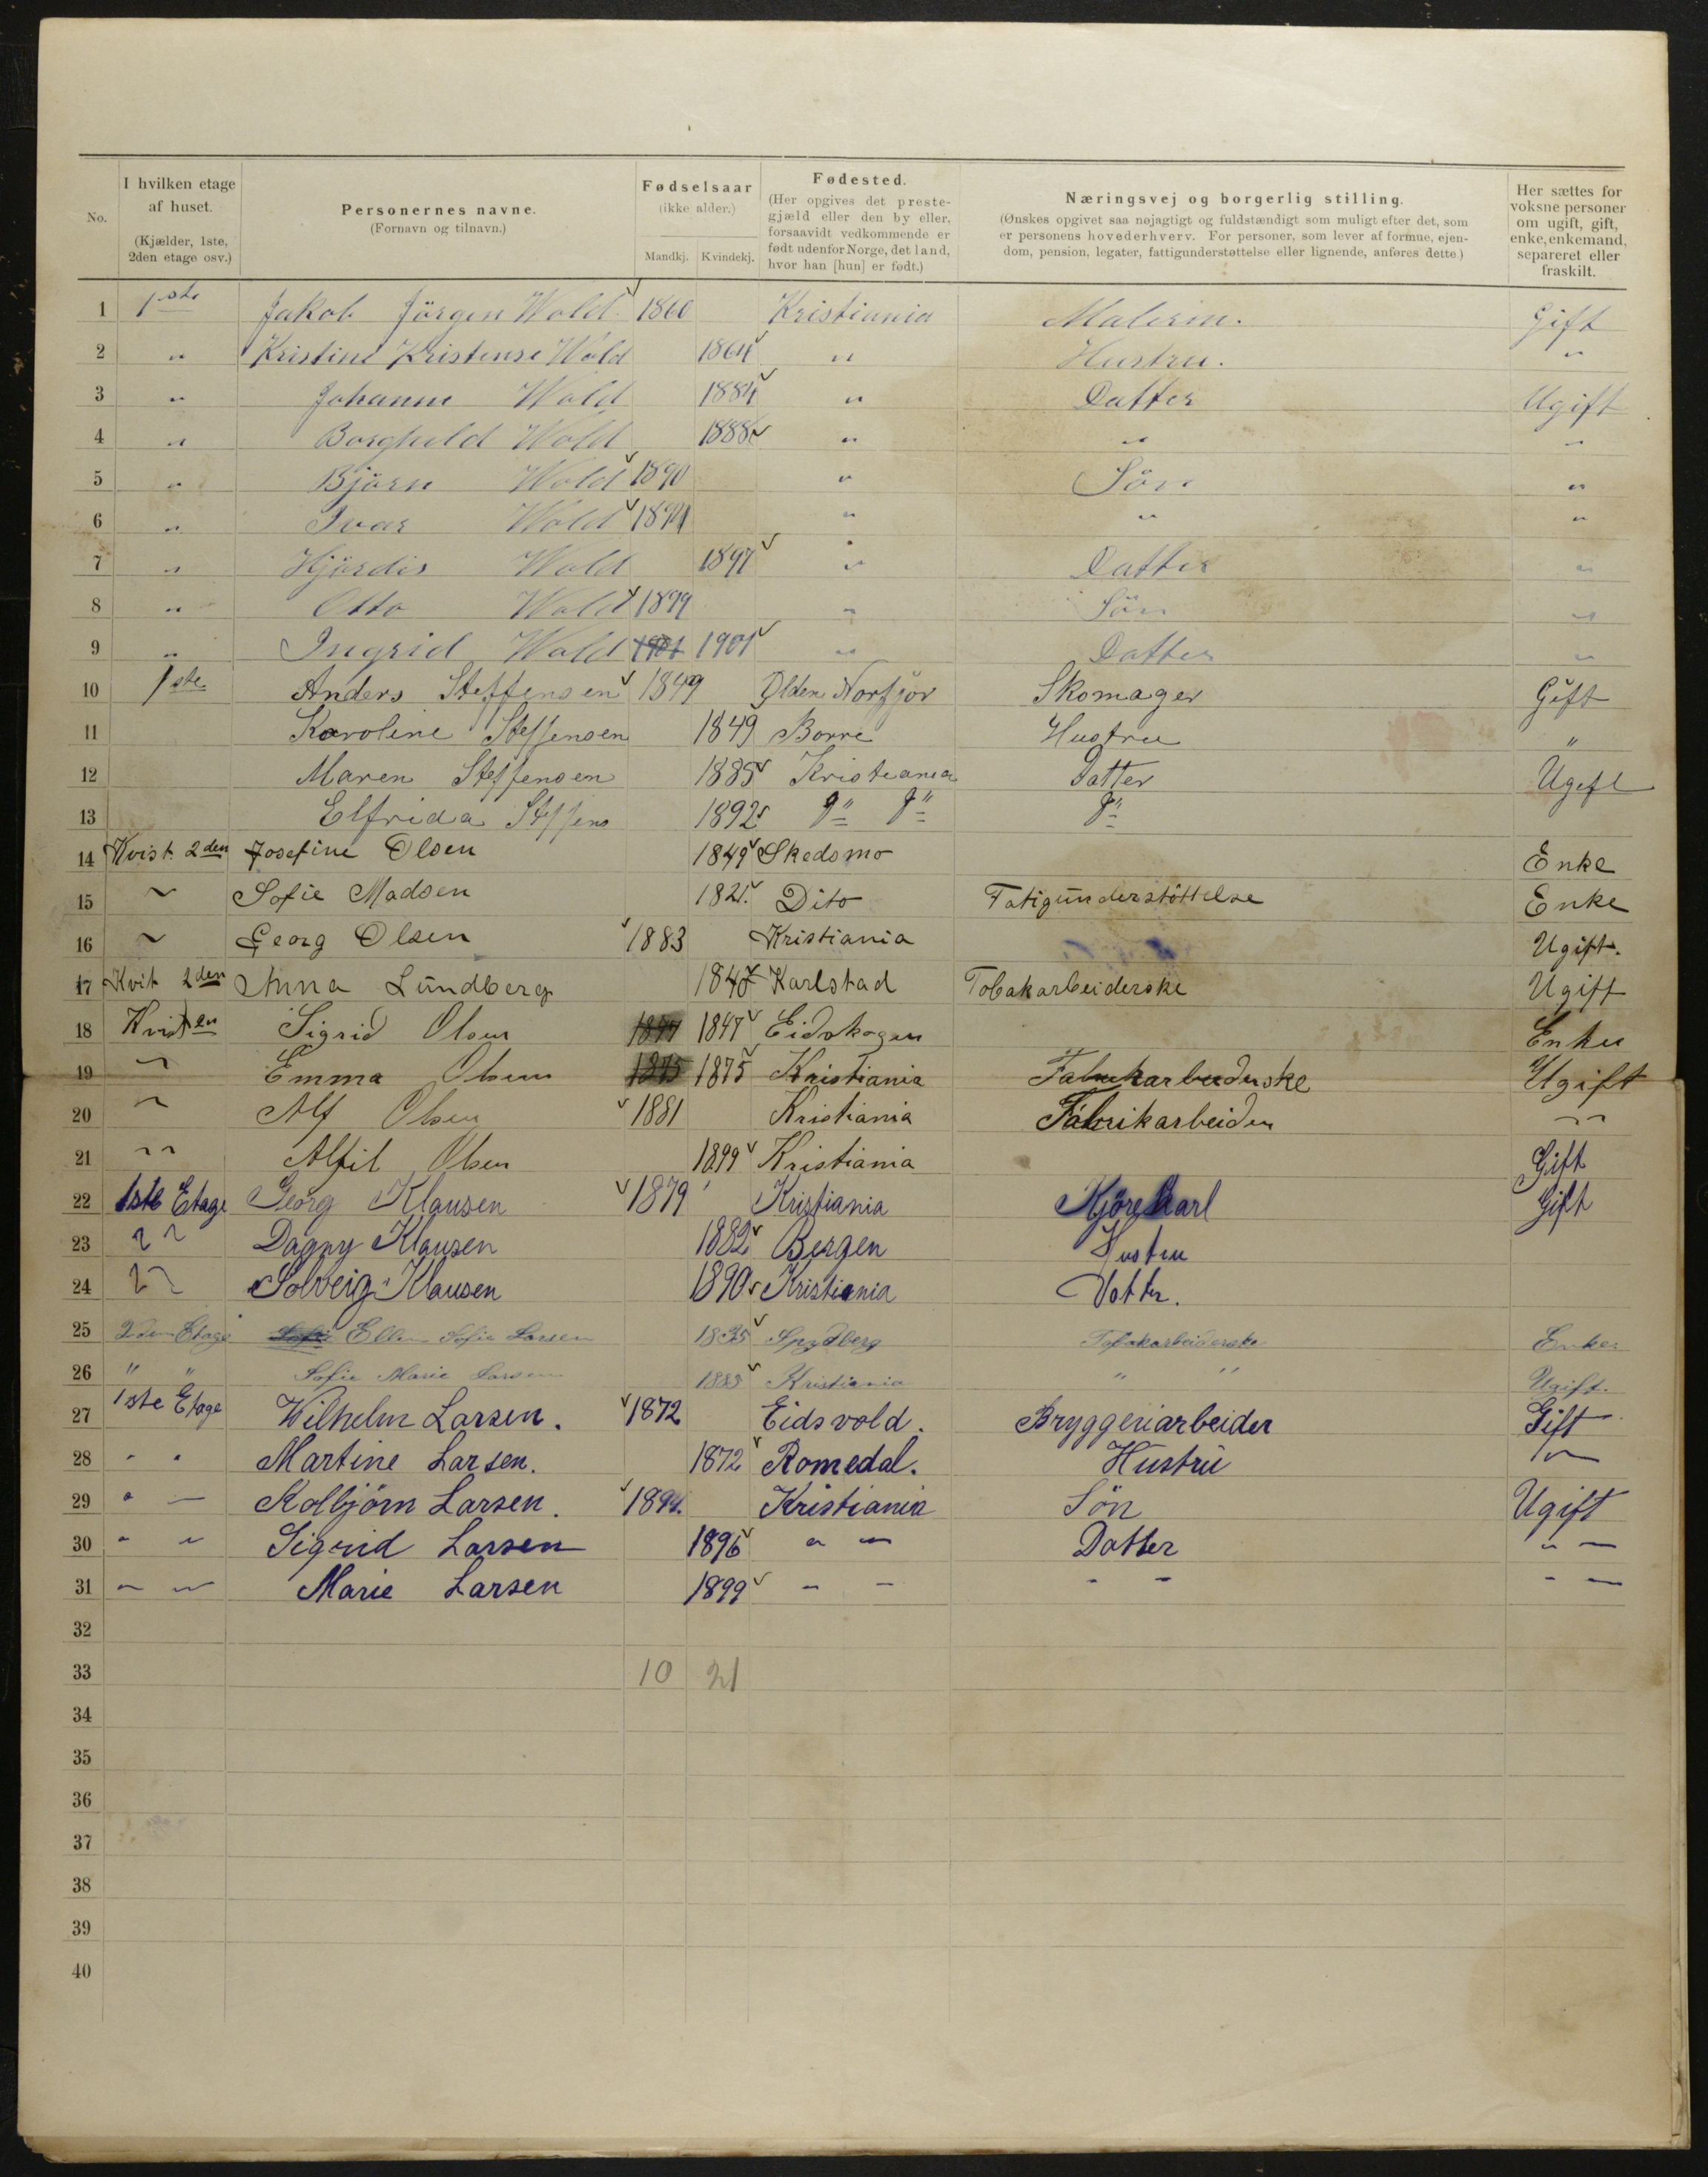 No.
I hvilken etage
af huset.
(Kjælder, 1ste,
2den etage osv.)
Personernes navne.
(Fornavn og tilnavn.)
Fødselsaar
(ikke alder.)
Mandkj. Kvindekj.
Fødested.
(Her opgives det preste-
gjæld eller den by eller,
forsaavidt vedkommende er
født udenfor Norge, det land,
hvor han [hun] er født.)
Næringsvej og borgerlig stilling.
(Ønskes opgivet saa nøjagtigt og fuldstændigt som muligt efter det, som
er personens hovederhverv. For personer, som lever af formue, ejen-
dom, pension, legater, fattigunderstøttelse eller lignende, anføres dette.)
Her sættes for
voksne personer
om ugift, gift,
enke, enkemand,
separeret eller
fraskilt.
1 1ste Jakob Jörgen Wold 1860 Kristiania Gift
2 " Kristine Kristense Wold 1864 " Hustru. "
3 " Johanne Wold 1884 " Datter Ugift
4 " Borghild Wold 1888 " " "
5 " Björn Wold 1890 " Sön "
6 " Ivar Wold " " "
7 " Hjördis Wold 1897 " Datter "
8 " Otto Wold 1899 " Sön "
9 " Ingrid Wold 1901 1901 " Datter "
10 1ste Anders Steffensen 1849 Olden Norfjor Skomager Gift
11 Karoline Steffensen 1849 Borre Hustru "
12 Maren Steffensen 1885 Kristiania Datter Ugift
13 Elfrida Steffens 1892 D" D" D"
14 Kvist 2den Josefine Olsen 1849 Skedsmo Enke
15 " Sofie Madsen 1821 Dito Fatigunderstöttelse Enke
16 " Georg Olsen 1883 Kristiania Ugift.
17 Kvit 2den Anna Lundberg Karlstad Tobakarbeiderske Ugift
18 Kvisten Sigrid Olsen 1847 1847 Eidskogen Enke
19 " Emma Olsen 1875 1875 Kristiania Fabrikarbeiderske Ugift
20 " Alf Olsen 1881 Kristiania Fabrikarbeider "
21 " " Olsen 1899 Kristiania Gift
22 1ste Etage Georg Klausen 1879 Kristiania Kjörekarl Gift
23 " " Dagny Klausen 1882 Bergen Hustru
24 " " Solveig Klausen 1890 Kristiania Datter.
25 2den Etage Sofie Ellen Sofie Larsen 1835 Spydberg Tobakarbeiderske Enke
26 " " Sofie Marie Larsen Kristiania " " Ugift.
27 1ste Etage Wilhelm Larsen. 1872 Eidsvold. Bryggeriarbeider Gift
28 " " Martine Larsen. 1872 Romedal. Hustru "
29 " " Kolbjørn Larsen. 1894. Kristiania Sön Ugift
30 " " Sigrid Larsen 1896 " " Datter " "
31 " " Marie Larsen 1899 " " " " " "
32
33 10 21
34
35
36
37
38
39
40